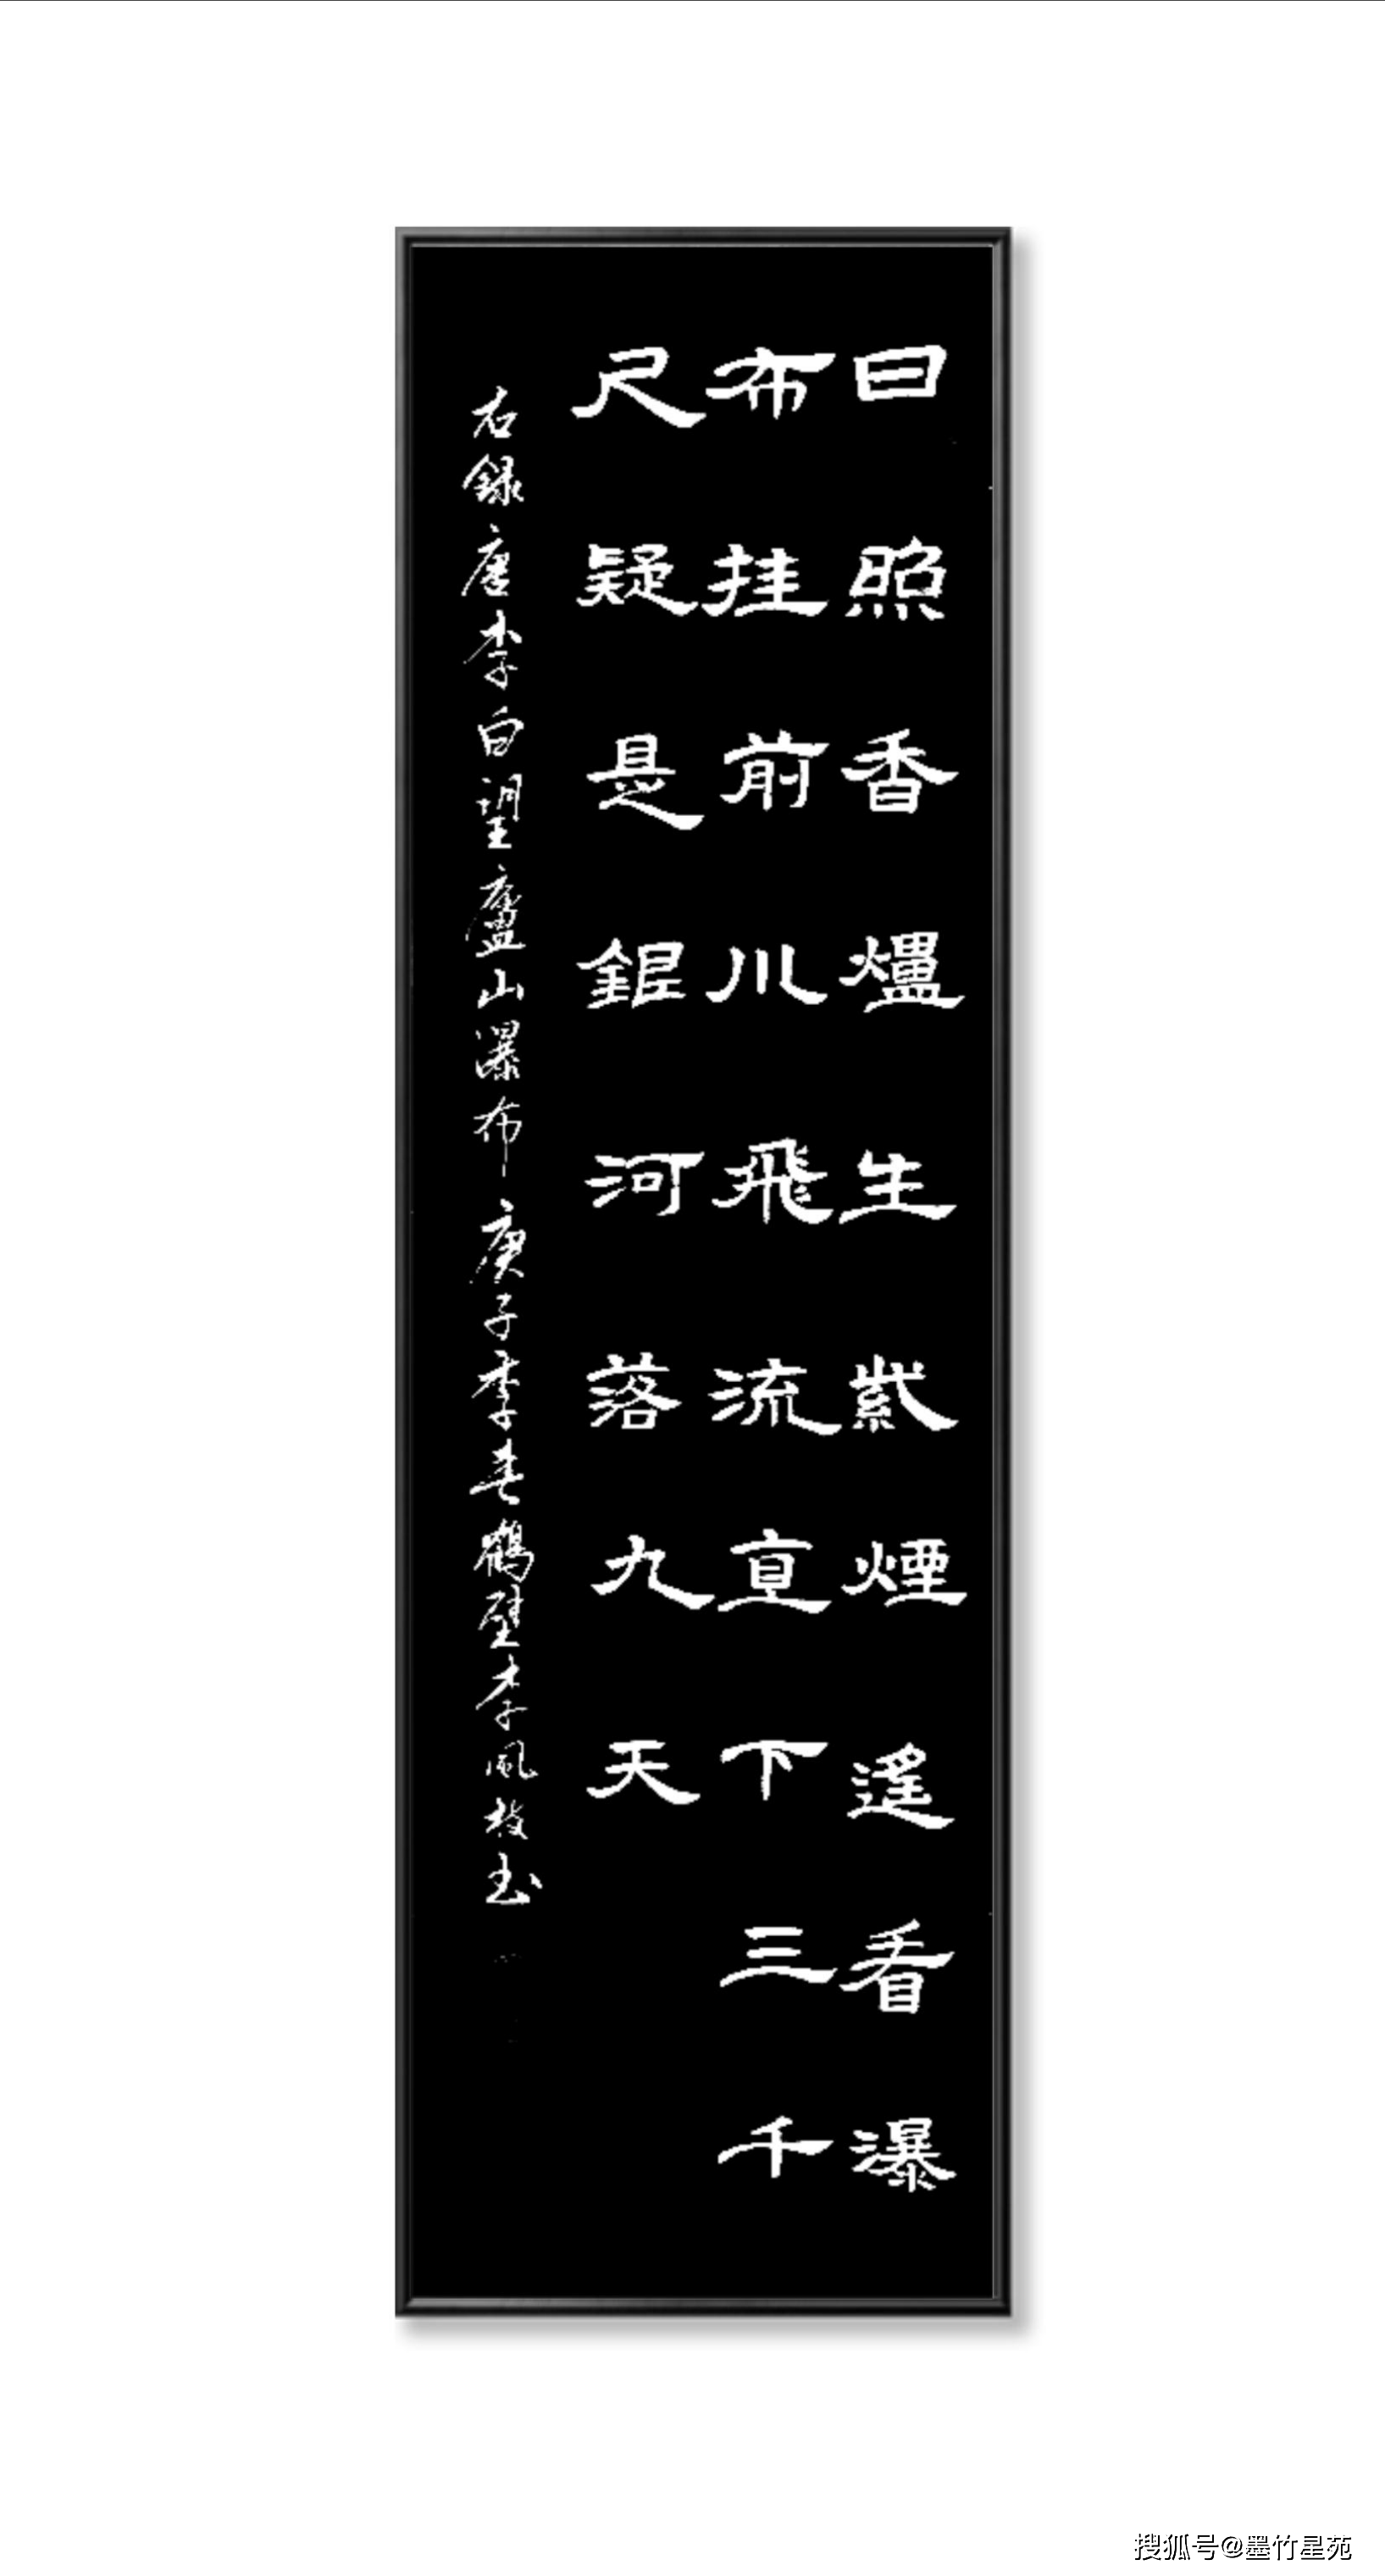 日照香爐生紫煙遙看瀑
布挂前川飛流直下三千
尺疑是銀河落九天
右録唐李白望廬山瀑布庚子季春鶴壁李風枝书
搜狐号@墨竹星苑